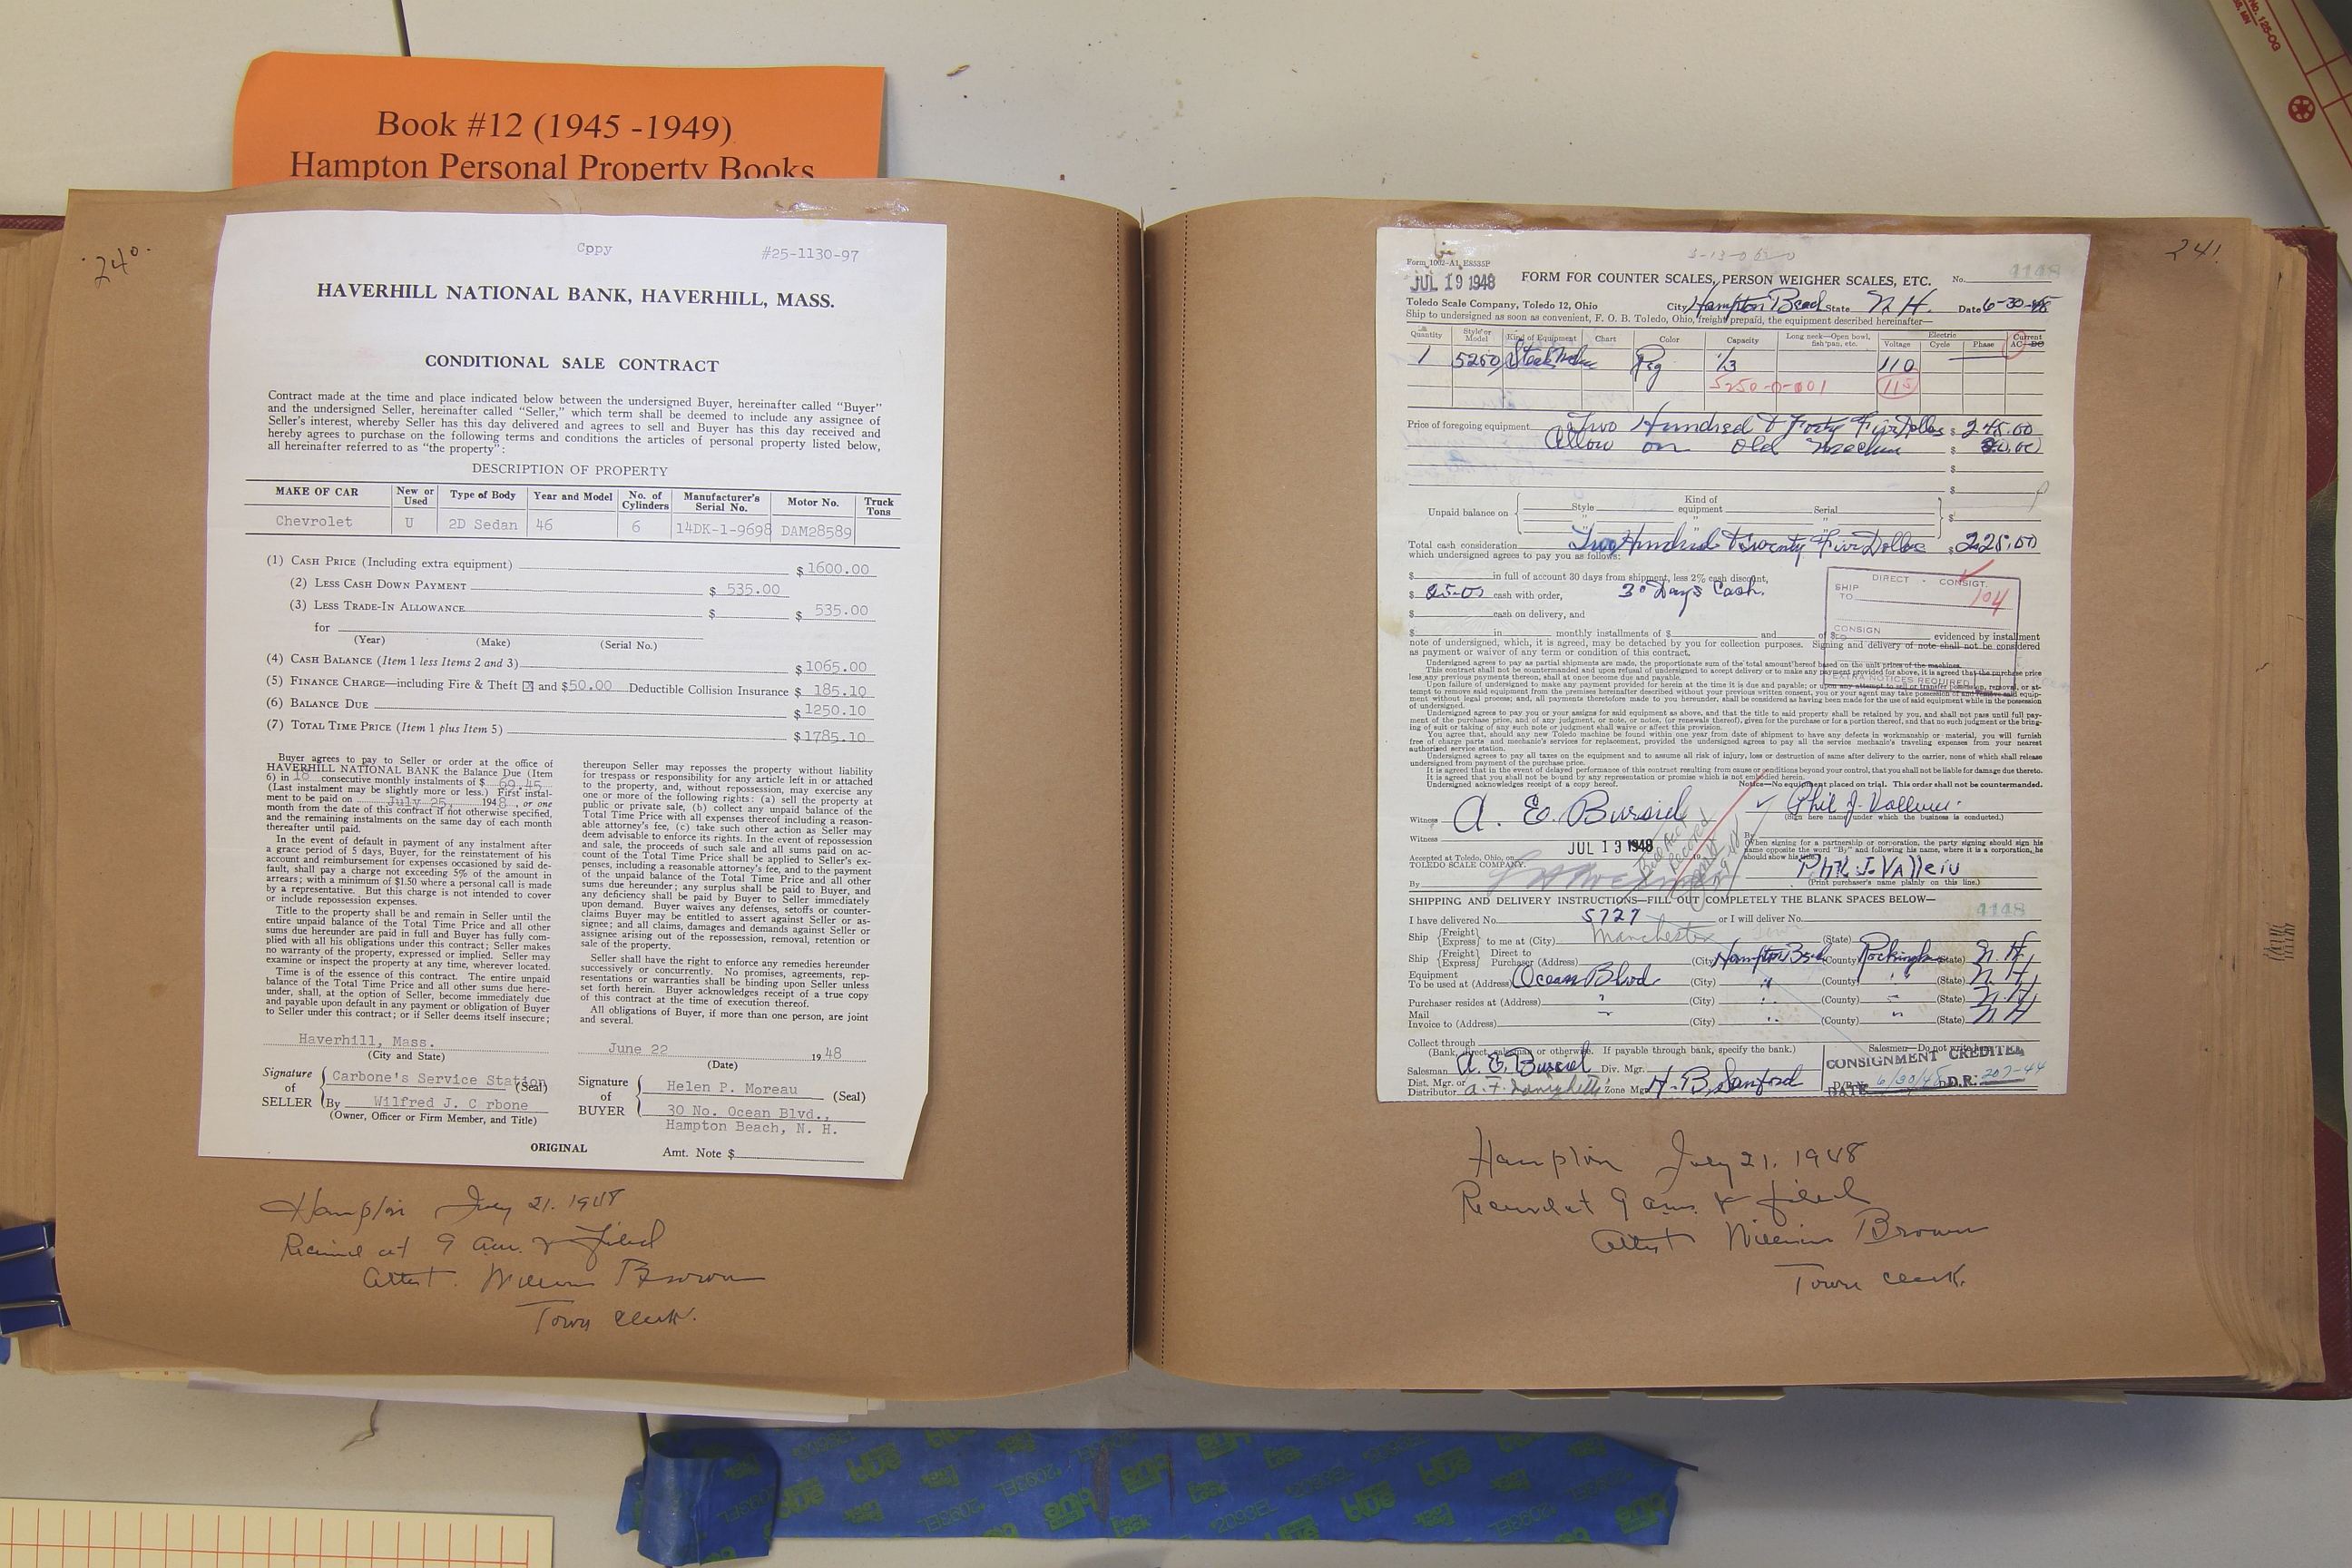 Book #12 (1945 -1949)
Hampton Personal Property Books
240.
Cppy #25-1130-97
HAVERHILL NATIONAL BANK, HAVERHILL, MASS.
CONDITIONAL SALE CONTRACT
Contract made at the time and place indicated below between the undersigned Buyer, hereinafter called "Buyer"
and the undersigned Seller, hereinafter called "Seller," which term shall be deemed to include any assignee of
Seller's interest, whereby Seller has this day delivered and agrees to sell and Buyer has this day received and
hereby agrees to purchase on the following terms and conditions the articles of personal property listed below,
all hereinafter referred to as "the property":
DESCRIPTION OF PROPERTY
MAKE OF CAR New or Used Type of Body Year and Model No. of Cylinders Manufacturer's Serial No. Motor No. Truck Tons
Chevrolet U 2D Sedan 46 6 14DK-1-9698 DAM28589
(1) CASH PRICE (Including extra equipment) $1600.00
(2) LESS CASH DOWN PAYMENT $ 535.00
(3) LESS TRADE-IN ALLOWANCE $ $ 535.00
for
(Year) (Make) (Serial No.)
(4) CASH BALANCE (Item 1 less Items 2 and 3) $1065.00
(5) FINANCE CHARGE—including Fire & Theft x and $50.00 Deductible Collision Insurance $ 185.10
(6) BALANCE DUE $1250.10
(7) TOTAL TIME PRICE (Item 1 plus Item 5) $1785.10
Buyer agrees to pay to Seller or order at the office of
HAVERHILL NATIONAL BANK the Balance Due (Item
6) in 18 consecutive monthly instalments of $ 69.45
(Last instalment may be slightly more or less.) First instal-
ment to be paid on July 25, 1948, or one
month from the date of this contract if not otherwise specified,
and the remaining instalments on the same day of each month
thereafter until paid.
In the event of default in payment of any instalment after
a grace period of 5 days, Buyer, for the reinstatement of his
account and reimbursement for expenses occasioned by said de-
fault, shall pay a charge not exceeding 5% of the amount in
arrears; with a minimum of $1.50 where a personal call is made
by a representative. But this charge is not intended to cover
or include repossession expenses.
Title to the property shall be and remain in Seller until the
entire unpaid balance of the Total Time Price and all other
sums due hereunder are paid in full and Buyer has fully com-
plied with all his obligations under this contract; Seller makes
no warranty of the property, expressed or implied. Seller may
examine or inspect the property at any time, wherever located.
Time is of the essence of this contract. The entire unpaid
balance of the Total Time Price and all other sums due here-
under, shall, at the option of Seller, become immediately due
and payable upon default in any payment or obligation of Buyer
to Seller under this contract; or if Seller deems itself insecure;
thereupon Seller may reposses the property without liability
for trespass or responsibility for any article left in or attached
to the property, and, without repossession, may exercise any
one or more of the following rights: (a) sell the property at
public or private sale, (b) collect any unpaid balance of the
Total Time Price with all expenses thereof including a reason-
able attorney's fee, and (c) take such other action as Seller may
deem advisable to enforce its rights. In the event of repossession
and sale, the proceeds of such sale and all sums paid on ac-
count of the Total Time Price shall be applied to Seller's ex-
penses, including a reasonable attorney's fee, and to the payment
of the unpaid balance of the Total Time Price and all other
sums due hereunder; any surplus shall be paid to Buyer, and
any deficiency shall be paid by Buyer to Seller immediately
upon demand. Buyer waives any defenses, setoffs or counter-
claims Buyer may be entitled to assert against Seller or as-
signee; and all claims, damages and demands against Seller or
assignee arising out of the repossession, removal, retention or
sale of the property.
Seller shall have the right to enforce any remedies hereunder
successively or concurrently. No promises, agreements, rep-
resentations or warranties shall be binding upon Seller unless
set forth herein. Buyer acknowledges receipt of a true copy
of this contract at the time of execution thereof.
All obligations of Buyer, if more than one person, are joint
and several.
Haverhill, Mass. June 22 1948
(City and State) (Date)
Signature of SELLER Carbone's Service Station (Seal)
By Wilfred J. C rbone
(Owner, Officer or Firm Member, and Title)
Signature of BUYER Helen P. Moreau (Seal)
30 No. Ocean Blvd.,
Hampton Beach, N. H.
ORIGINAL Amt. Note $
Hampton July 21, 1948
Received at 9 am. & filed
Attest. William Brown
Town Clerk.
241.
Form 1002-A1 E8535P
JUL 19 1948 FORM FOR COUNTER SCALES, PERSON WEIGHER SCALES, ETC. No. 4148
Toledo Scale Company, Toledo 12, Ohio City Hampton Beach State N. H. Date 6-30-48
Ship to undersigned as soon as convenient, F. O. B. Toledo, Ohio, freight prepaid, the equipment described hereinafter—
Quantity Style or Model Kind of Equipment Chart Color Capacity Long neck—Open bowl, fish pan, etc. Electric Voltage Cycle Phase Current AC-DC
1 5250 1/3 110
5250-0-001 115
Price of foregoing equipment Two Hundred & Forty Five Dollars $ 245.00
Allow on Old Machine $ 20.00
$
$
Unpaid balance on Style Kind of equipment Serial $
Total cash consideration Two Hundred Twenty Five Dollars $ 225.00
which undersigned agrees to pay you as follows:
$ in full of account 30 days from shipment, less 2% cash discount,
$ 25.00 cash with order, 30 Days Cash.
$ cash on delivery, and
DIRECT - CONSIGT.
SHIP TO 104
CONSIGN TO
EXTRA NOTICES REQUIRED
$ in monthly installments of $ and of $ evidenced by installment
note of undersigned, which, it is agreed, may be detached by you for collection purposes. Signing and delivery of note shall not be considered
as payment or waiver of any term or condition of this contract.
Undersigned agrees to pay as partial shipments are made, the proportionate sum of the total amount hereof based on the unit prices of the machines.
This contract shall not be countermanded and upon refusal of undersigned to accept delivery or to make any payment provided for above, it is agreed that the purchase price
less any previous payments thereon, shall at once become due and payable.
Upon failure of undersigned to make any payment provided for herein at the time it is due and payable; or upon any attempt to sell or transfer possession, removal, or at-
tempt to remove said equipment from the premises hereinafter described without your previous written consent, you or your agent may take possession of and remove said equip-
ment without legal process; and, all payments theretofore made to you hereunder, shall be considered as having been made for the use of said equipment while in the possession
of undersigned.
Undersigned agrees to pay you or your assigns for said equipment as above, and that the title to said property shall be retained by you, and shall not pass until full pay-
ment of the purchase price, and of any judgment, or note, or notes, (or renewals thereof), given for the purchase or for a portion thereof, and that no such judgment or the bring-
ing of suit or taking of any such note or judgment shall waive or affect this provision.
You agree that, should any new Toledo machine be found within one year from date of shipment to have any defects in workmanship or material, you will furnish
free of charge parts and mechanic's services for replacement, provided the undersigned agrees to pay all the service mechanic's traveling expenses from your nearest
authorized service station.
Undersigned agrees to pay all taxes on the equipment and to assume all risk of injury, loss or destruction of same after delivery to the carrier, none of which shall release
undersigned from payment of the purchase price.
It is agreed that in the event of delayed performance of this contract resulting from causes or conditions beyond your control, that you shall not be liable for damage due thereto.
It is agreed that you shall not be bound by any representation or promise which is not embodied herein.
Undersigned acknowledges receipt of a copy hereof. Notice—No equipment placed on trial. This order shall not be countermanded.
Witness A. E. Bursiel Phil J. Vallein
(Sign here name under which the business is conducted.)
Witness By
JUL 13 1948 (When signing for a partnership or corporation, the party signing should sign his
name opposite the word "By" and following his name, where it is a corporation, he
should show his title.)
Accepted at Toledo, Ohio, on
TOLEDO SCALE COMPANY. Phil J. Vallein
By (Print purchaser's name plainly on this line.)
SHIPPING AND DELIVERY INSTRUCTIONS—FILL OUT COMPLETELY THE BLANK SPACES BELOW—
I have delivered No. 5727 or I will deliver No. 4148
Ship {Freight Express} to me at (City) Manchester (State)
Ship {Freight Express} Direct to Purchaser (Address) (City) Hampton Bech (County) Rockingham (State) N. H.
Equipment To be used at (Address) Ocean Blvd (City) " (County) " (State) N. H.
Purchaser resides at (Address) " (City) " (County) " (State) N. H.
Mail Invoice to (Address) " (City) " (County) " (State) N H
Collect through
(Bank, direct, salesman or otherwise. If payable through bank, specify the bank.) Salesmen—Do not write here
Salesman A. E. Bursiel Div. Mgr. CONSIGNMENT CREDITED
Dist. Mgr. or Distributor Zone Mgr. H. B. Sanford DATE 6/30/48 D.R. 207-44
Hampton July 21, 1948
Received at 9 am. & filed
Attest William Brown
Town Clerk.